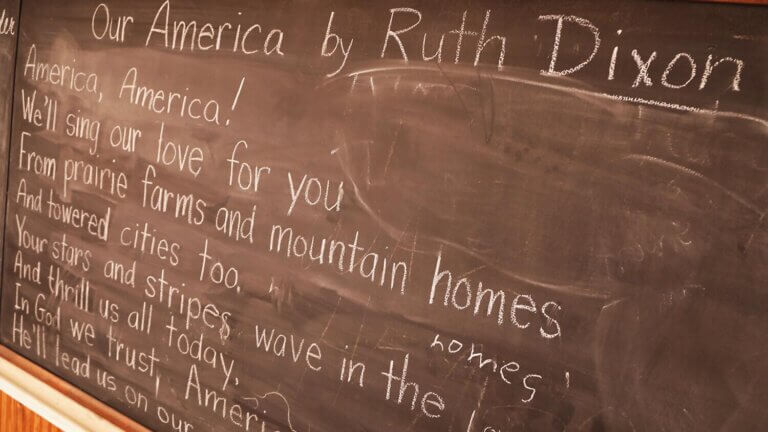 Our America by Ruth Dixon
America, America!
We'll sing our love for you
From prairie farms and mountain homes
And towered cities too.
homes
Your stars and stripes wave in the
And thrill us all today.
In God we trust, Americ
He'll lead us on our